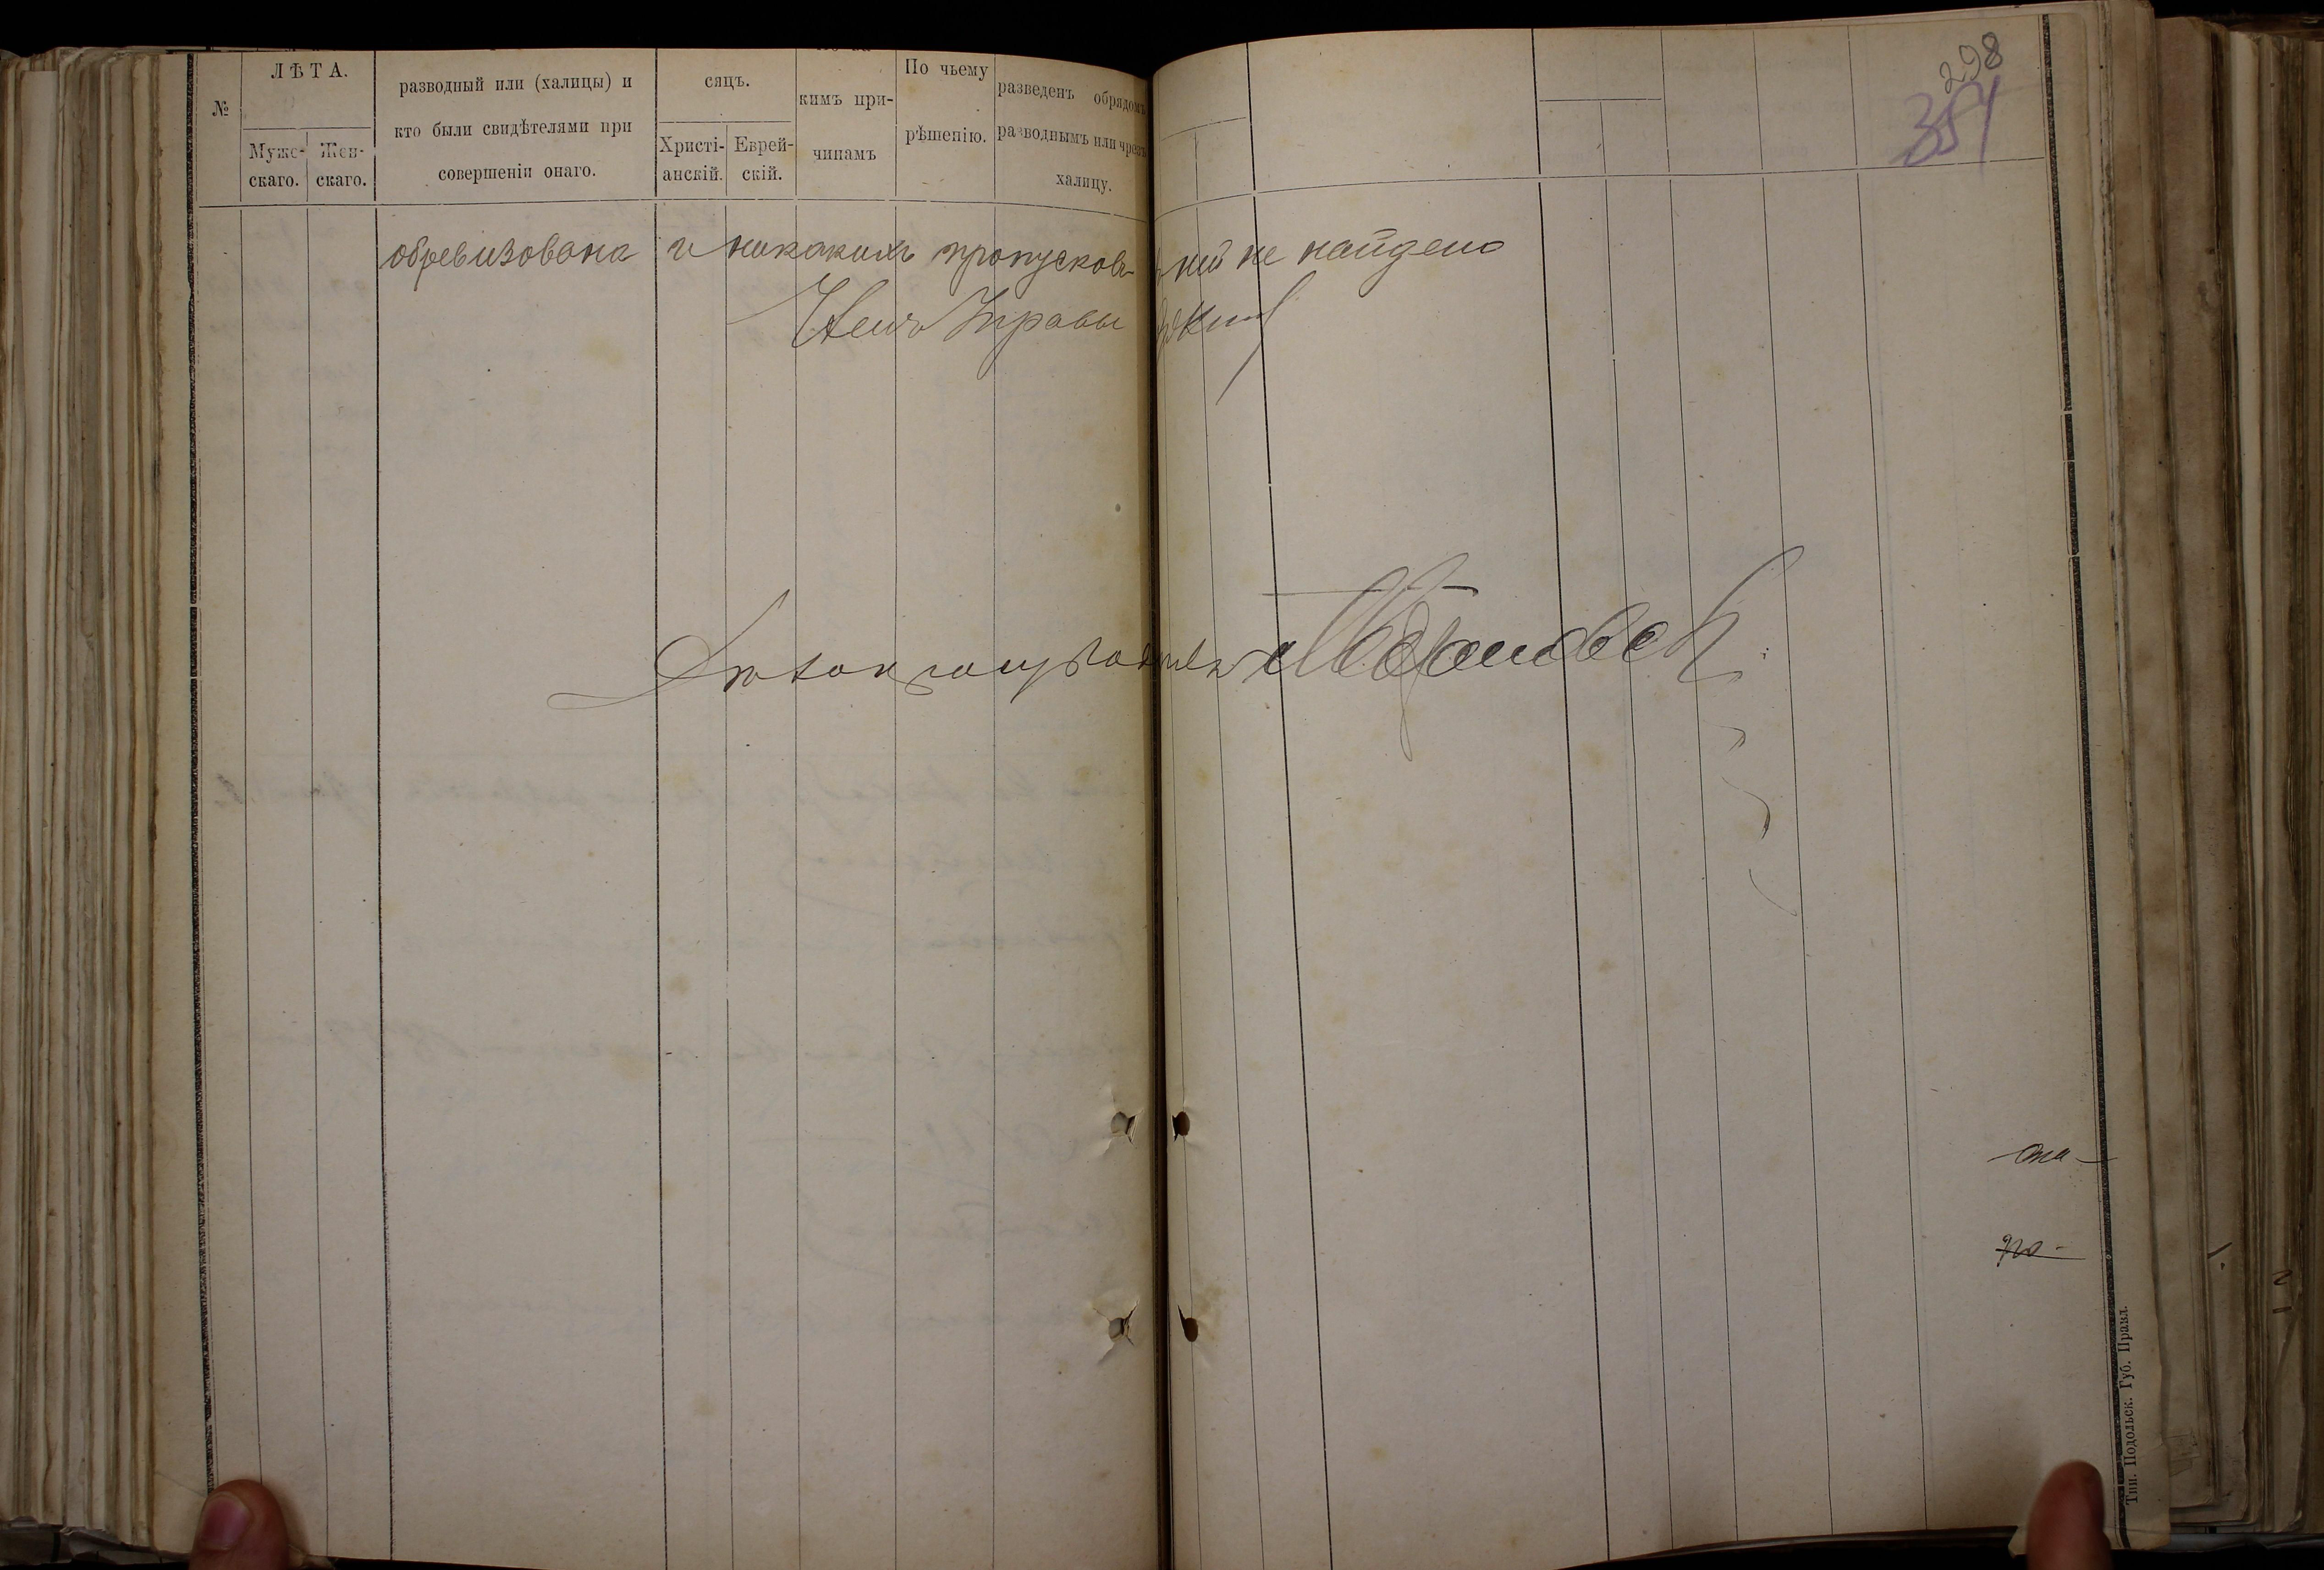 298
351
№
ЛѢТА.
Муже-
скаго.
Жен-
скаго.
разводный или (халицы) и
кто были свидѣтелями при
совершеніи онаго.
сяцъ.
Христі-
анскій.
Еврей-
скій.
кимъ при-
чинамъ
По чьему
рѣшенію.
разведенъ обрядомъ
разводнымъ или чрезъ
халицу.
обревизована и никакихъ пропусковъ в ней не найдено
Членъ Управы
Тип. Подольск. Губ. Правл.